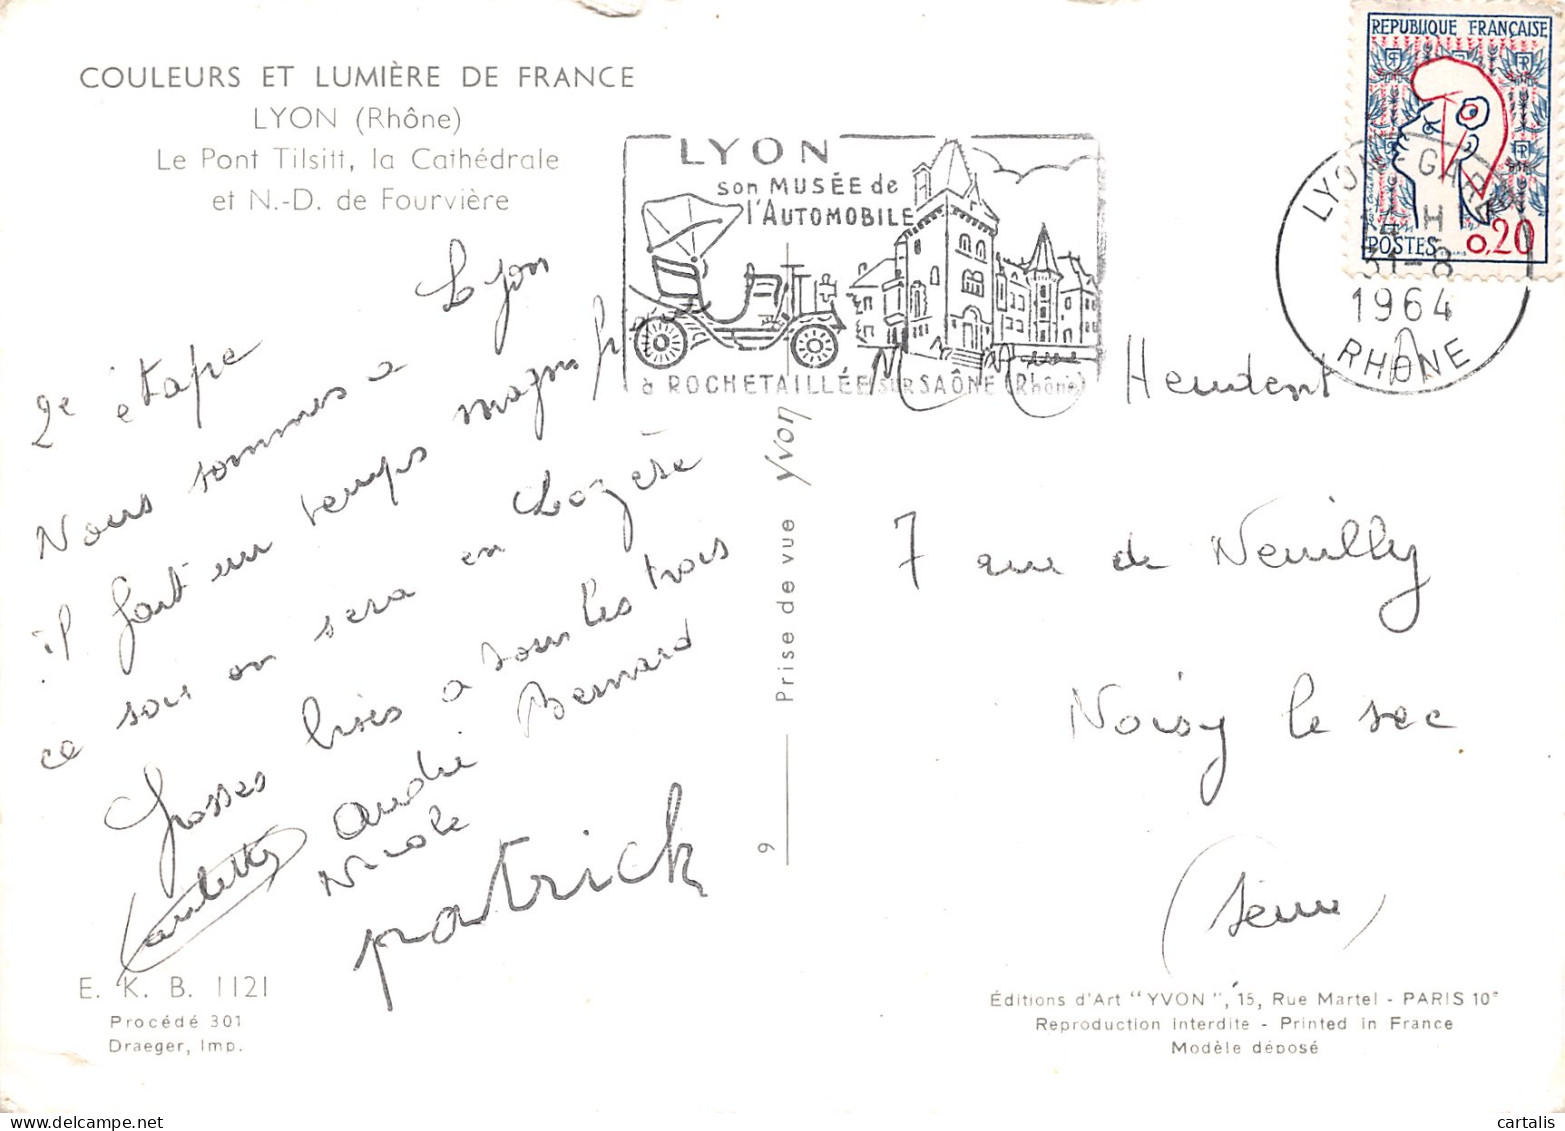 COULEURS ET LUMIÈRE DE FRANCE
LYON (Rhône)
Le Pont Tilsitt, la Cathédrale
et N.-D. de Fourvière
LYON
son MUSÉE de
l'AUTOMOBILE
à ROCHETAILLÉE SUR SAÔNE (Rhône)
REPUBLIQUE FRANÇAISE
POSTES 0,20
LYON-GARE
12 H
31-8
1964
RHÔNE
2e étape
Nous sommes à Lyon
il fait un temps magnifique
ce soir on sera en Lozère
Grosses bises a tous les trois
Paulette André Bernard
Nicole
patrick
Prise de vue Yvon
9
M Mme Heudent
7 rue de Neuilly
Noisy le sec
(Seine)
E. K. B. 1121
Procédé 301
Draeger, Imp.
Éditions d'Art "YVON", 15, Rue Martel - PARIS 10e
Reproduction interdite - Printed in France
Modèle déposé
cartalis